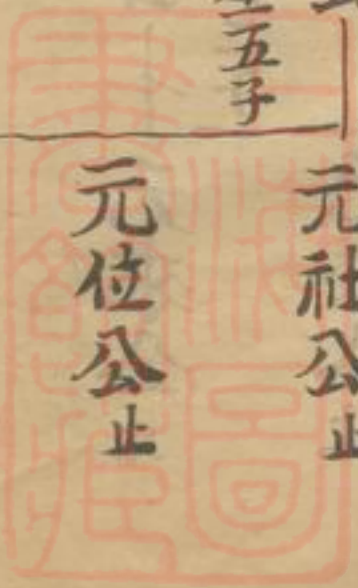 五子
元社公止
元位公止